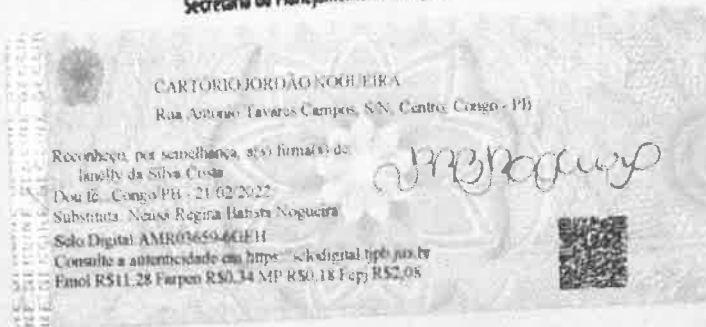 Secretaria de Planejamento
CARTORIO JORDÃO NOGUEIRA
Rua Antonio Tavares Campos, S/N, Centro, Congo - PB
Reconheço, por semelhança, a(s) firma(s) de:
da Silva Costa
Dou fé. Congo/PB - 21/02/2022
Substituta: Neusa Regina Batista Nogueira
Selo Digital AMR03659-6GEH
Consulte a autenticidade em https://selodigital.tjpb.jus.br
Emol R$11,28 Farpen R$0,34 MP R$0,18 Fepj R$2,08